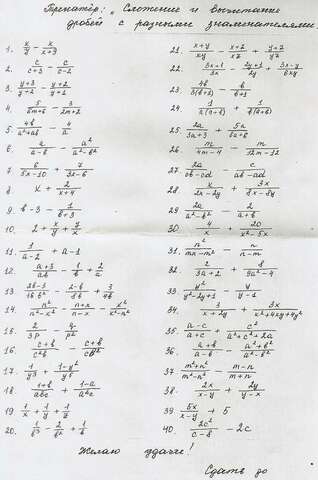 Тренажёр: „Сложение и вычитание
дробей с разными знаменателями.
1. x/y - y/(x+3)
2. c/(c+3) - c/(c-2)
3. (y+3)/(y+2) - (y+2)/(y+1)
4. 5/(6m+6) - 3/(2m+2)
5. 4b/(a²+ab) - 4/a
6. a/(a-b) - a²/(a²-b²)
7. 6/(5x-10) + 7/(3x-6)
8. x + 2/(x+4)
9. b-3 - 1/(b+3)
10. 2 + x/y + y/x
11. 1/(a-2) + a-1
12. (a+3)/(ab) - 1/b + 2/a
14. n²/(n²-x²) - (n+x)/(n-x) - x²/(x²-n²)
15. 2/(3p) - 4/p²
16. (c+b)/(c²b) - (c+b)/(cb²)
17. 1/y³ + (1-y²)/y⁵
18. (1+b)/(abc) + (1-a)/(abc)
19. 1/x + 1/y + 1/y
20. 1/b³ - 2/b² + 1/b
21. (x+y)/(xy) - (x+z)/(xz) + (y+z)/(yz)
22. (3x+1)/(3x) - (2y+1)/(2y) + (3x-y)/(6xy)
23. 4b/(3(b+2)) - b/(b+1)
24. 1/(a(a+b)) + 1/(b(a+b))
25. 2a/(3a+3) + 5a/(6a+6)
26. m/(4m-4) - m/(12m-12)
27. 2a/(ab-cd) - c/(ab-ad)
28. x/(2x-2y) + 3x/(8x-8y)
29. 2a/(a²-b²) - 2/(a+b)
30. 4/x + 20/(x²-5x)
31. n²/(mn-m²) - n/(n-m)
32. 2/(3a+2) + 8/(9a²-4)
33. y²/(y²-2y+1) - y/(y-1)
34. 3/(x+2y) + 3x/(x²+4xy+4y²)
35. (a-c)/(a+c) + c²/(a²+c²+2a)
36. (a+b)/(a-b) - (a²+b²)/(a²-b²)
37. (m²+n²)/(m²-n²) - (m-n)/(m+n)
38. 2x/(x-y) + 2y/(y-x)
39. 5x/(x-y) + 5
40. 2c²/(c-8) - 2c
Желаю удачи!
Сдать до